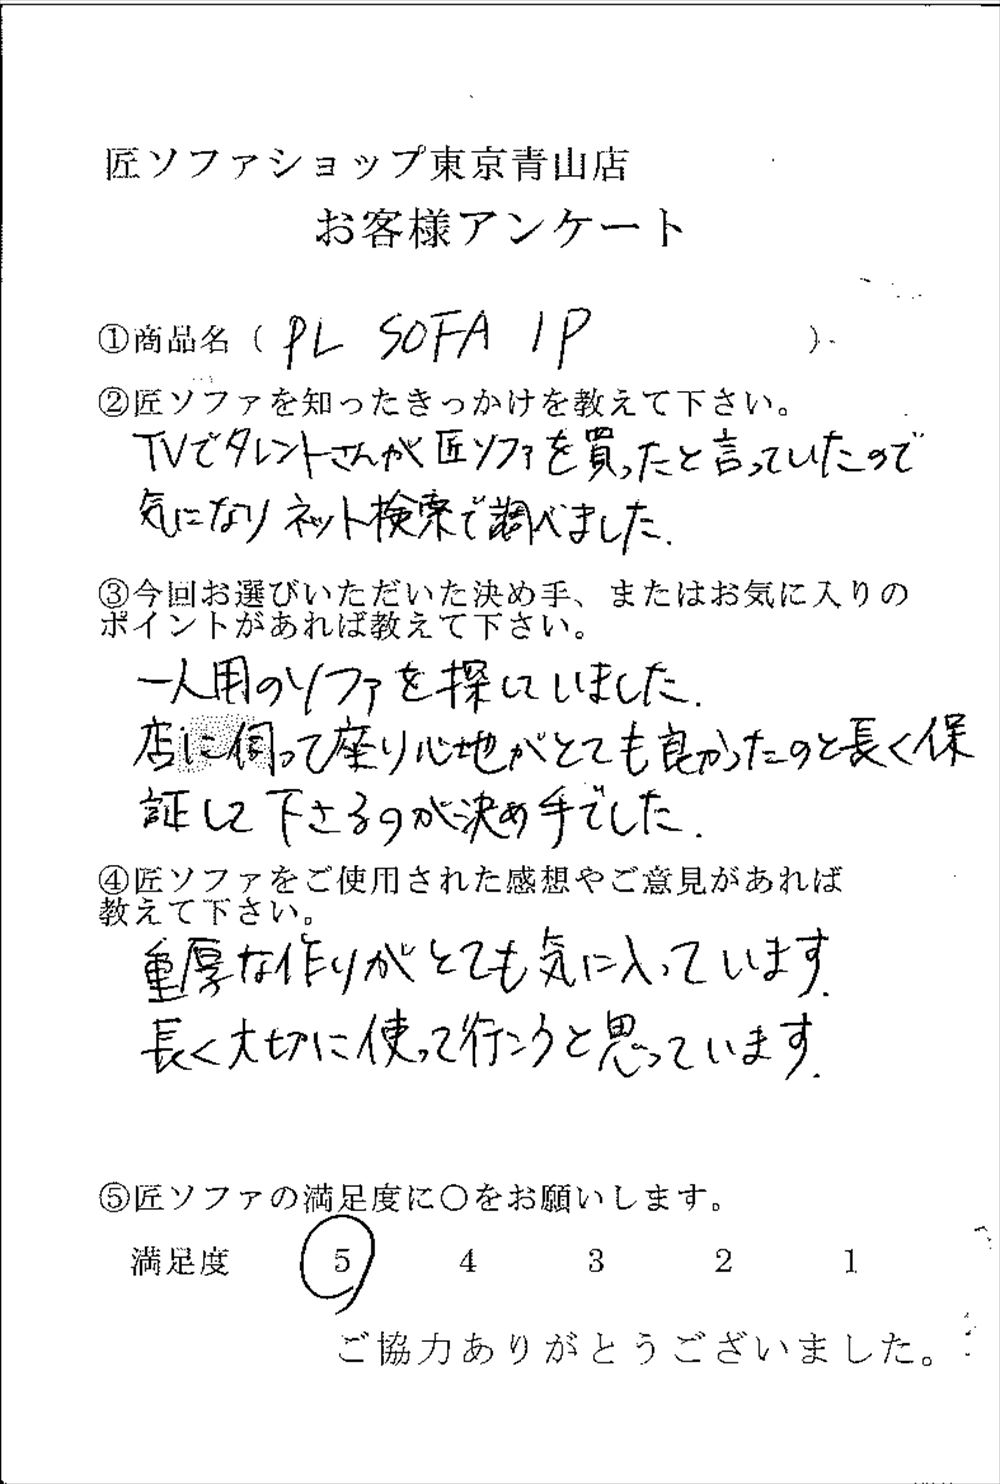 匠ソファショップ東京青山店
お客様アンケート
①商品名（ PL SOFA 1P ）
②匠ソファを知ったきっかけを教えて下さい。
TVでタレントさんが匠ソファを買ったと言っていたので
気になりネット検索で調べました.
③今回お選びいただいた決め手、またはお気に入りの
ポイントがあれば教えて下さい。
一人用のソファを探していました.
店に伺って座り心地がとても良かったのと長く保
証して下さるのが決め手でした.
④匠ソファをご使用された感想やご意見があれば
教えて下さい。
重厚な作りがとても気に入っています.
長く大切に使って行こうと思っています.
⑤匠ソファの満足度に○をお願いします。
満足度 5 4 3 2 1
ご協力ありがとうございました。